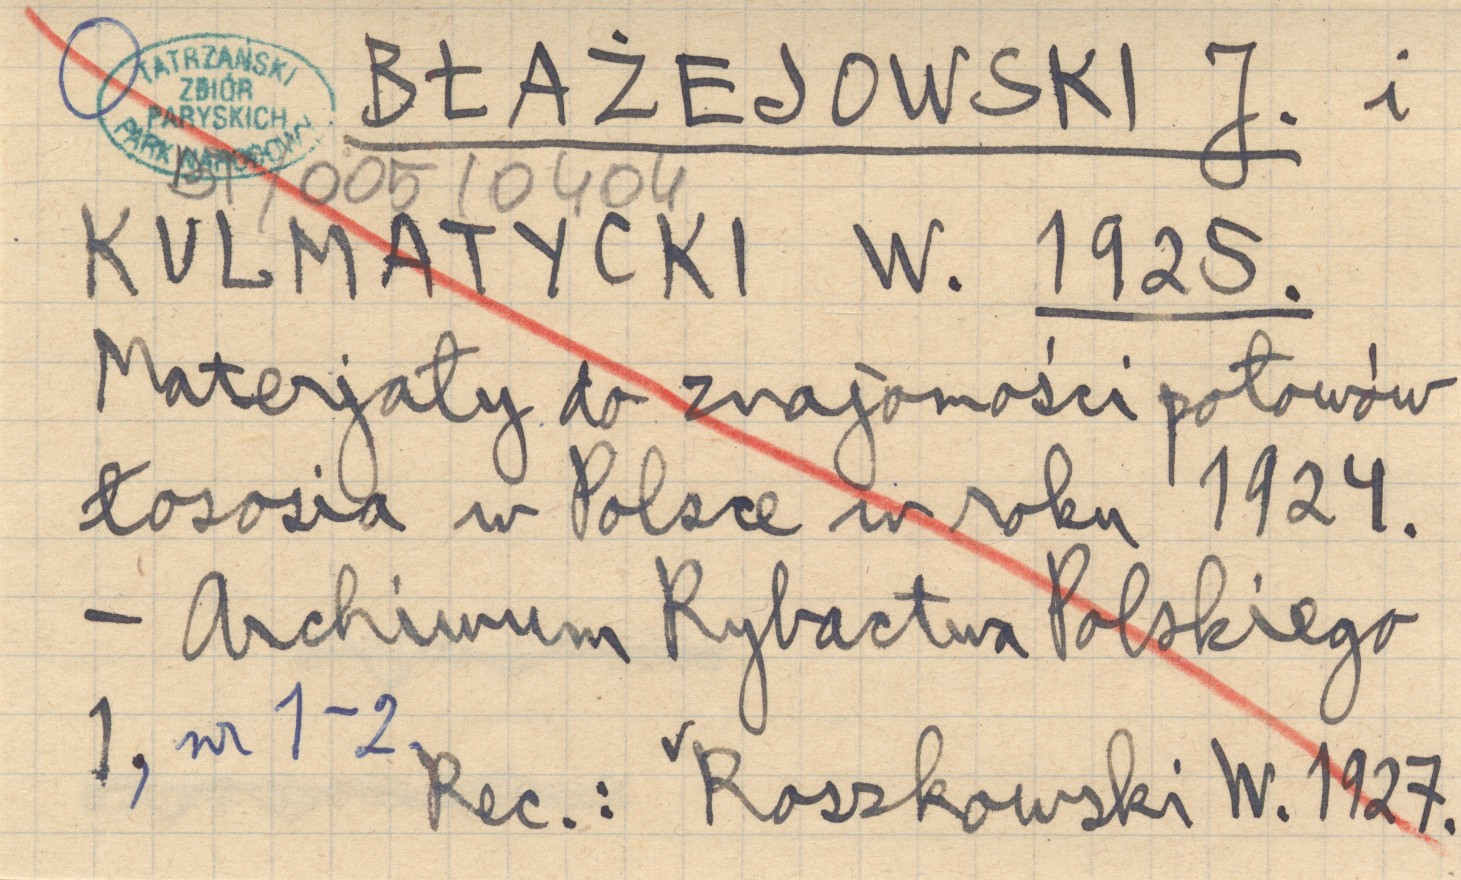 TATRZAŃSKI
ZBIÓR
PARYSKICH
PARK NARODOWY
BŁAŻEJOWSKI J. i
BT/005/0404
KULMATYCKI W. 1925.
Materjały do znajomości połowów
łososia w Polsce w roku 1924.
— Archiwum Rybactwa Polskiego
1, nr 1-2.
Rec.: Roszkowski W. 1927.